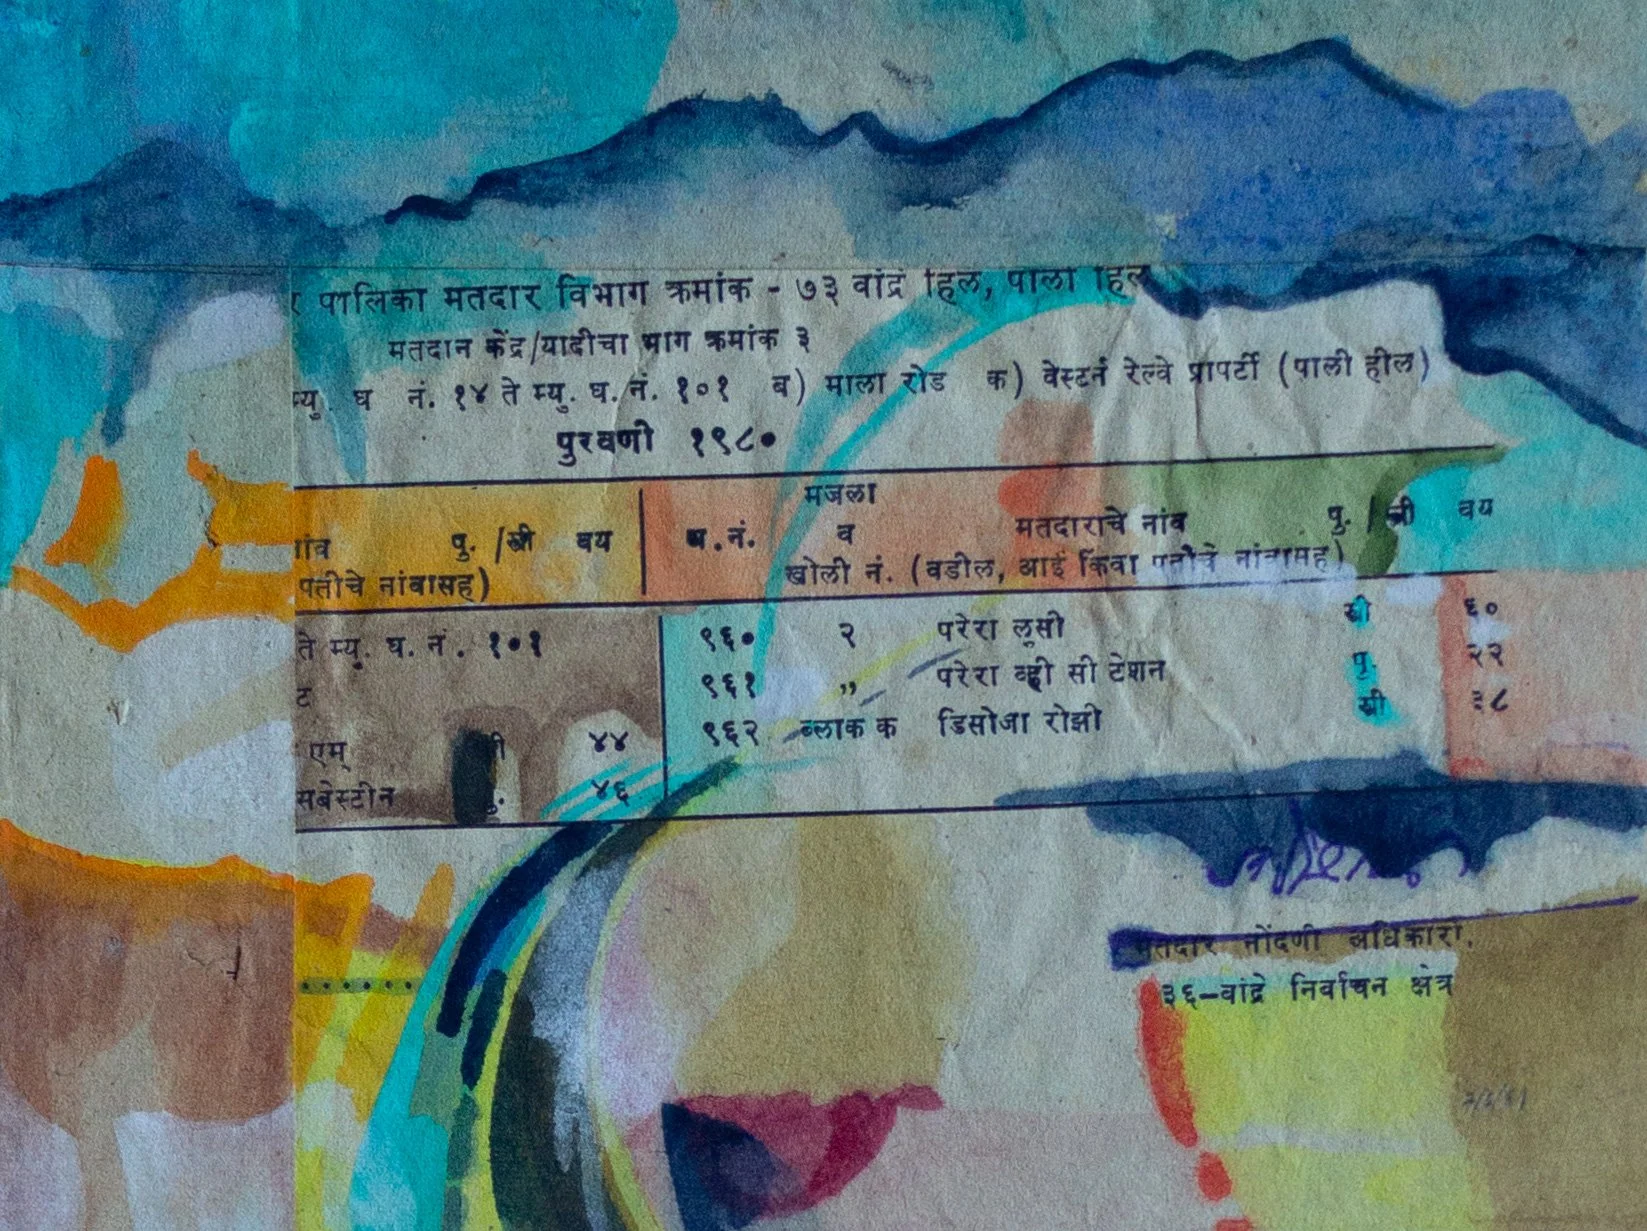 र पालिका मतदार विभाग क्रमांक - ७३ वांद्रे हिल, पाली हिल
मतदान केंद्र/यादीचा भाग क्रमांक ३
म्यु. घ. नं. १४ ते म्यु. घ. नं. १०१ ब) माला रोड क) वेस्टर्न रेल्वे प्रापर्टी (पाली हील)
पुरवणी १९८०
नांव पु. /स्त्री वय घ. नं. मजला व खोली नं. मतदाराचे नांव पु. /स्त्री वय
पतीचे नांवासह) (वडील, आई किंवा पतीचे नांवासह)
ते म्यु. घ. नं. १०१ ९६० २ परेरा लूसी स्त्री ६०
ट ९६१ ,, परेरा व्ही सी टेशन पु. २२
एम् ४४ ९६२ ब्लाक क डिसोजा रोझी स्त्री ३८
सबेस्टीन पु. ४६
मतदार नोंदणी अधिकारी,
३६-वांद्रे निर्वाचन क्षेत्र